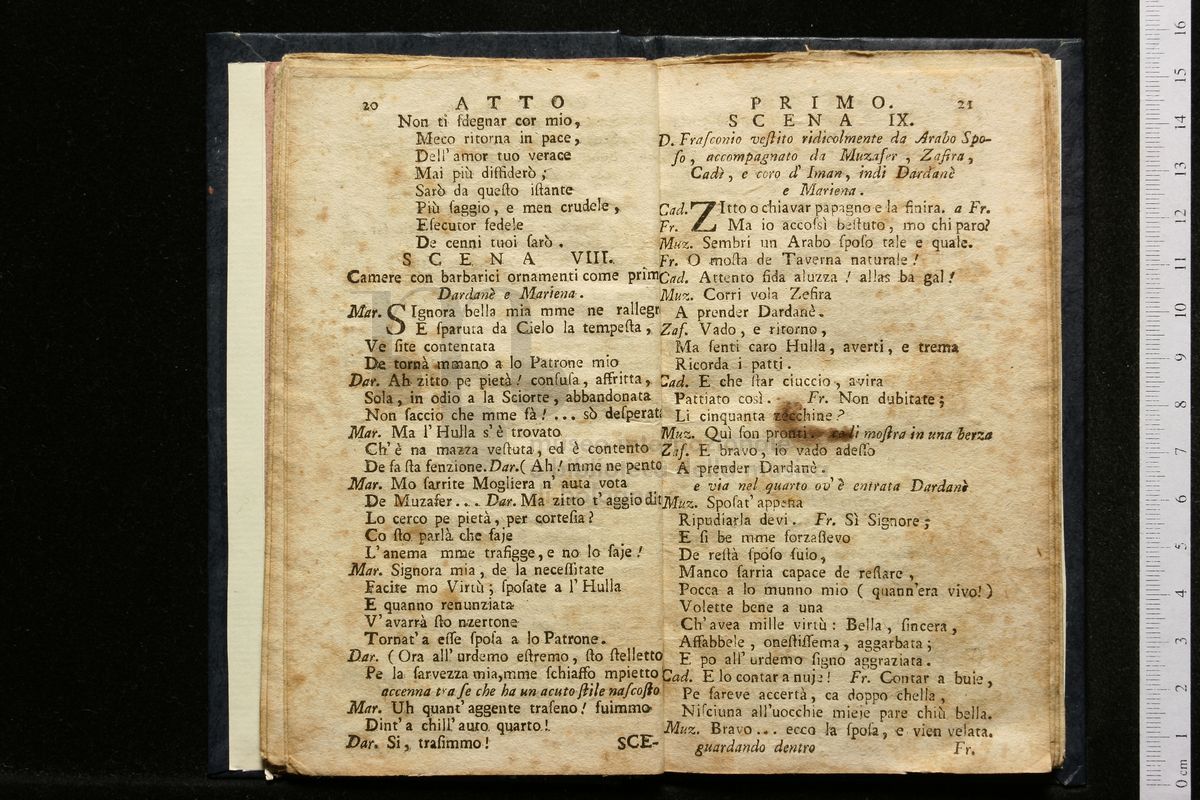 20 ATTO
Non ti ſdegnar cor mio,
Meco ritorna in pace,
Dell' amor tuo verace
Mai più diffiderò;
Sarò da queſto iſtante
Più ſaggio, e men crudele,
Eſecutor fedele
De cenni tuoi ſarò.
SCENA VIII.
Camere con barbarici ornamenti come prim
Dardanè e Mariena.
Mar. SIgnora bella mia mme ne rallegr
E ſparuta da Cielo la tempeſta,
Ve ſite contentata
De tornà mmano a lo Patrone mio
Dar. Ah zitto pe pietà! confuſa, affritta,
Sola, in odio a la Sciorte, abbandonata
Non ſaccio che mme fà! ... sò deſperat
Mar. Ma l'Hulla s'è trovato
Ch'è na mazza veſtuta, ed è contento
De fa ſta fenzione. Dar. (Ah! mme ne pento
Mar. Mo ſarrite Mogliera n'auta vota
De Muzafer... Dar. Ma zitto t'aggio dit
Lo cerco pe pietà, per corteſia?
Co ſto parlà che faje
L'anema mme trafigge, e no lo ſaje!
Mar. Signora mia, de la neceſſitate
Facite mo Virtù; ſpoſate a l'Hulla
E quanno renunziata
V'avarrà ſto nzertone
Tornat'a eſſe ſpoſa a lo Patrone.
Dar. (Ora all'urdemo eſtremo, ſto ſtelletto
Pe la ſarvezza mia, mme ſchiaffo mpietto
accenna tra ſe che ha un acuto ſtile naſcoſto
Mar. Uh quant'aggente traſeno! fuimmo
Dint'a chill'auto quarto!
Dar. Si, traſimmo!
SCE-
PRIMO. 21
SCENA IX.
D. Fraſconio veſtito ridicolmente da Arabo Spo-
ſo, accompagnato da Muzafer, Zafira,
Cadì, e coro d'Iman, indi Dardanè
e Mariena.
Cad. ZItto o chiavar papagno e la finira. a Fr.
Fr. Ma io accoſsì beſtuto, mo chi paro?
Muz. Sembri un Arabo ſpoſo tale e quale.
Fr. O moſta de Taverna naturale!
Cad. Attento fida aluzza! allas ba gal!
Muz. Corri vola Zefira
A prender Dardanè.
Zaf. Vado, e ritorno,
Ma ſenti caro Hulla, averti, e trema
Ricorda i patti.
Cad. E che ſtar ciuccio, avira
Pattiato così. Fr. Non dubitate;
Li cinquanta zecchine?
Muz. Quì ſon pronti. ce li moſtra in una borza
Zaf. E bravo, io vado adeſſo
A prender Dardanè.
e via nel quarto ov'è entrata Dardanè
Muz. Spoſat'appena
Ripudiarla devi. Fr. Sì Signore;
E ſi be mme forzaſſevo
De reſtà ſpoſo ſuio,
Manco ſarria capace de reſtare,
Pocca a lo munno mio (quann'era vivo!)
Volette bene a una
Ch'avea mille virtù: Bella, ſincera,
Affabbele, oneſtiſſema, aggarbata;
E po all'urdemo ſignò aggraziata.
Cad. E lo contar a nuje! Fr. Contar a buie,
Pe fareve accertà, ca doppo chella,
Niſciuna all'uocchie mieie pare chiù bella.
Muz. Bravo... ecco la ſpoſa, e vien velata.
guardando dentro
Fr.
16
15
14
13
12
11
10
9
8
7
6
5
4
3
2
1
0 cm